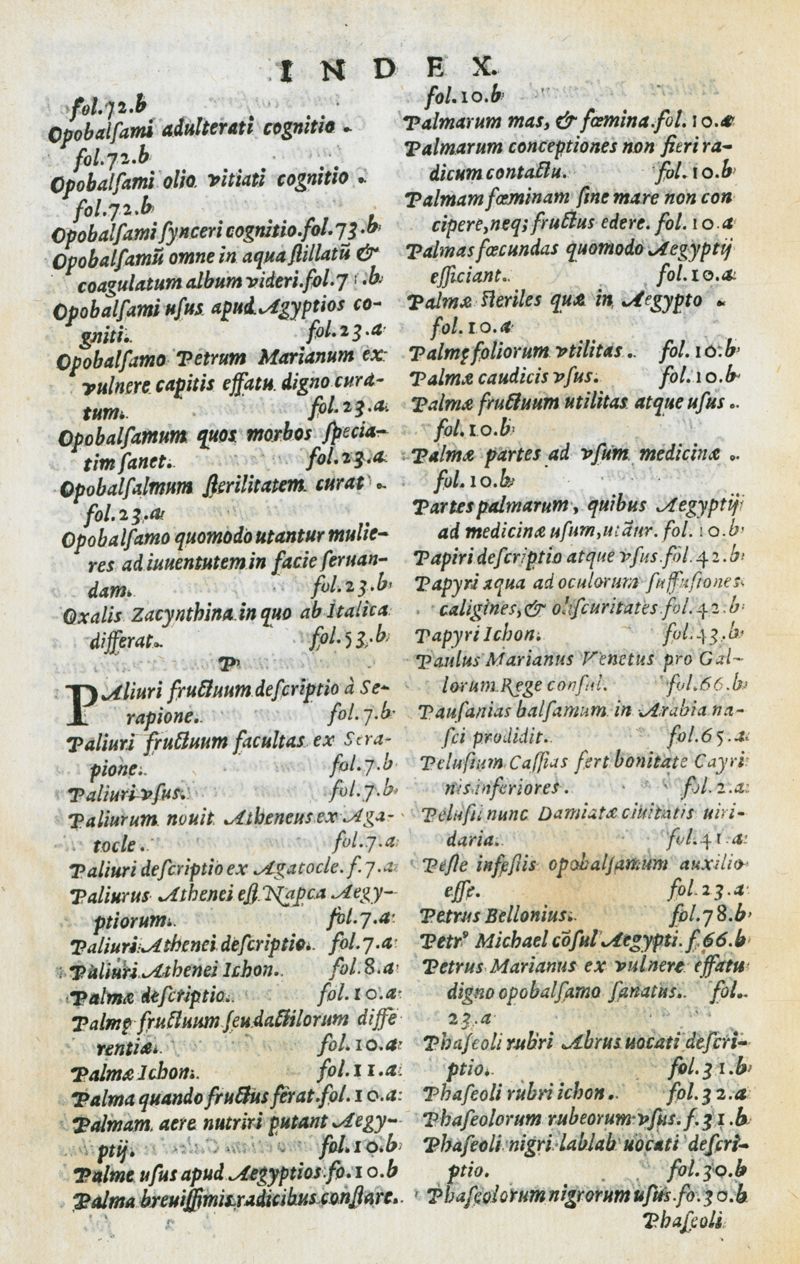 INDEX.
fol.72.b
Opobalſami adulterati cognitio.
fol.72.b
Opobalſami olio vitiati cognitio.
fol.72.b
Opobalſami ſynceri cognitio.fol.73.b
Opobalſamū omne in aqua ſtillatū &
coagulatum album videri.fol.7 .b
Opobalſami uſus apud Ægyptios co-
gniti. fol.23.a
Opobalſamo Petrum Marianum ex
vulnere capitis effatu digno cura-
tum. fol.23.a.
Opobalſamum quos morbos ſpecia-
tim ſanet. fol.23.a
Opobalſalmum ſterilitatem curat.
fol.23.a
Opobalſamo quomodo utantur mulie-
res ad iuuentutem in facie ſeruan-
dam. fol.23.b
Oxalis Zacynthina in quo ab Italica
differat. fol.53.b
P
PAliuri fructuum deſcriptio à Se-
rapione. fol.7.b
Paliuri fructuum facultas ex Sera-
pione. fol.7.b
Paliuri vſus. fol.7.b
Paliurum nouit Atheneus ex Aga-
tocle. fol.7.a
Paliuri deſcriptio ex Agatocle.f.7.a
Paliurus Athenei eſt Napca Aegy-
ptiorum. fol.7.a
Paliuri Athenei deſcriptio. fol.7.a
Paliuri Athenei Ichon. fol.8.a
Palmæ deſcriptio. fol.10.a
Palmę fructuum ſeu dactilorum diffe
rentiæ. fol.10.a
Palmæ Ichon. fol.11.a
Palma quando fructus ferat.fol.10.a
Palmam aere nutriri putant Aegy-
ptij. fol.10.b
Palme uſus apud Aegyptios.fo.10.b
Palma breuiſſimis radicibus conſtare.
fol.10.b
Palmarum mas, & fœmina.fol.10.a
Palmarum conceptiones non fieri ra-
dicum contactu. fol.10.b
Palmam fœminam ſine mare non con
cipere,neq; fructus edere. fol.10.a
Palmas fœcundas quomodo Aegyptij
efficiant. fol.10.a
Palmæ ſteriles quæ in Aegypto.
fol.10.a
Palmę foliorum vtilitas. fol.10.b
Palmæ caudicis vſus. fol.10.b
Palmæ fructuum utilitas atque uſus.
fol.10.b
Palmæ partes ad vſum medicinæ.
fol.10.b
Partes palmarum, quibus Aegyptij
ad medicinæ uſum,utātur.fol.10.b
Papiri deſcriptio atque vſus.fol.42.b
Papyri aqua ad oculorum ſuffuſiones
caligines,& obſcuritates.fol.42.b
Papyri Ichon. fol.43.b
Paulus Marianus Venetus pro Gal-
lorum Rege conſul. fol.66.b
Pauſanias balſamum in Arabia na-
ſci prodidit. fol.65.a
Peluſium Caſſias fert bonitate Cayri
nis inferiores. fol.2.a
Peluſii nunc Damiatæ ciuitatis uiri-
daria. fol.41.a
Peſte infeſtis opobalſamum auxilio
eſſe. fol.23.a
Petrus Bellonius. fol.78.b
Petr⁹ Michael cōſul Aegypti.f.66.b
Petrus Marianus ex vulnere effatu
digno opobalſamo ſanatus. fol.
23.a
Phaſeoli rubri Abrus uocati deſcri-
ptio. fol.31.b
Phaſeoli rubri ichon. fol.32.a
Phaſeolorum rubeorum vſus.f.31.b
Phaſeoli nigri lablab uocati deſcri-
ptio. fol.30.b
Phaſeolorum nigrorum uſus.fo.30.b
Phaſeoli